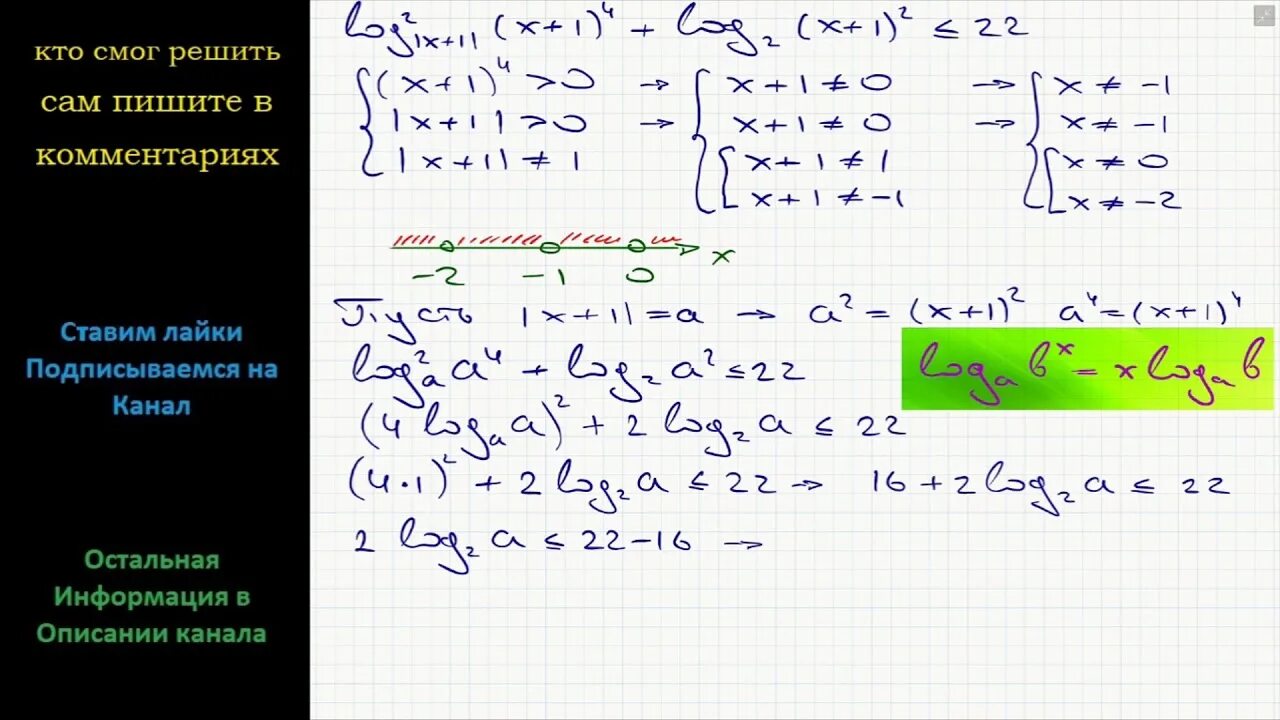 кто смог решить
сам пишите в
комментариях
Ставим лайки
Подписываемся на
Канал
Остальная
Информация в
Описании канала
log²_|x+1| (x+1)⁴ + log₂ (x+1)² ≤ 22
{ (x+1)⁴ > 0 → { x+1 ≠ 0 → { x ≠ -1
|x+1| > 0 → x+1 ≠ 0 → x ≠ -1
|x+1| ≠ 1 [ x+1 ≠ 1 [ x ≠ 0
x+1 ≠ -1 x ≠ -2
x
-2 -1 0
Пусть |x+1| = a → a² = (x+1)² a⁴ = (x+1)⁴
log²ₐ a⁴ + log₂ a² ≤ 22 logₐ bˣ = x logₐ b
(4 logₐ a)² + 2 log₂ a ≤ 22
(4·1)² + 2 log₂ a ≤ 22 → 16 + 2 log₂ a ≤ 22
2 log₂ a ≤ 22-16 →